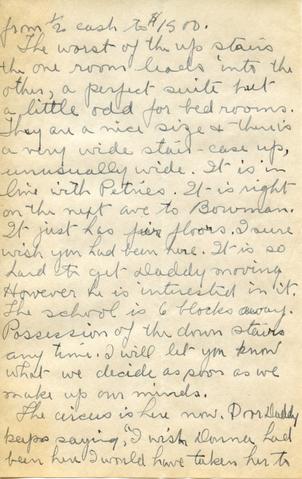 from ½ cash to $1500.
The worst of the up stairs
the one room leads into the
other, a perfect suite but
a little odd for bedrooms.
They are a nice size & there's
a very wide stair-case up,
unusually wide. It is in
line with Petries. It is right
on the next ave to Bowman.
It just has floors. I sure
wish you had been here. It is so
hard to get Daddy moving
However he is interested in it.
The school is 6 blocks away.
Possession of the down stairs
any time. I will let you know
what we decide as soon as we
make up our minds.
The circus is here now. Poor Daddy
keeps saying, "I wish Donna had
been here I would have taken her to